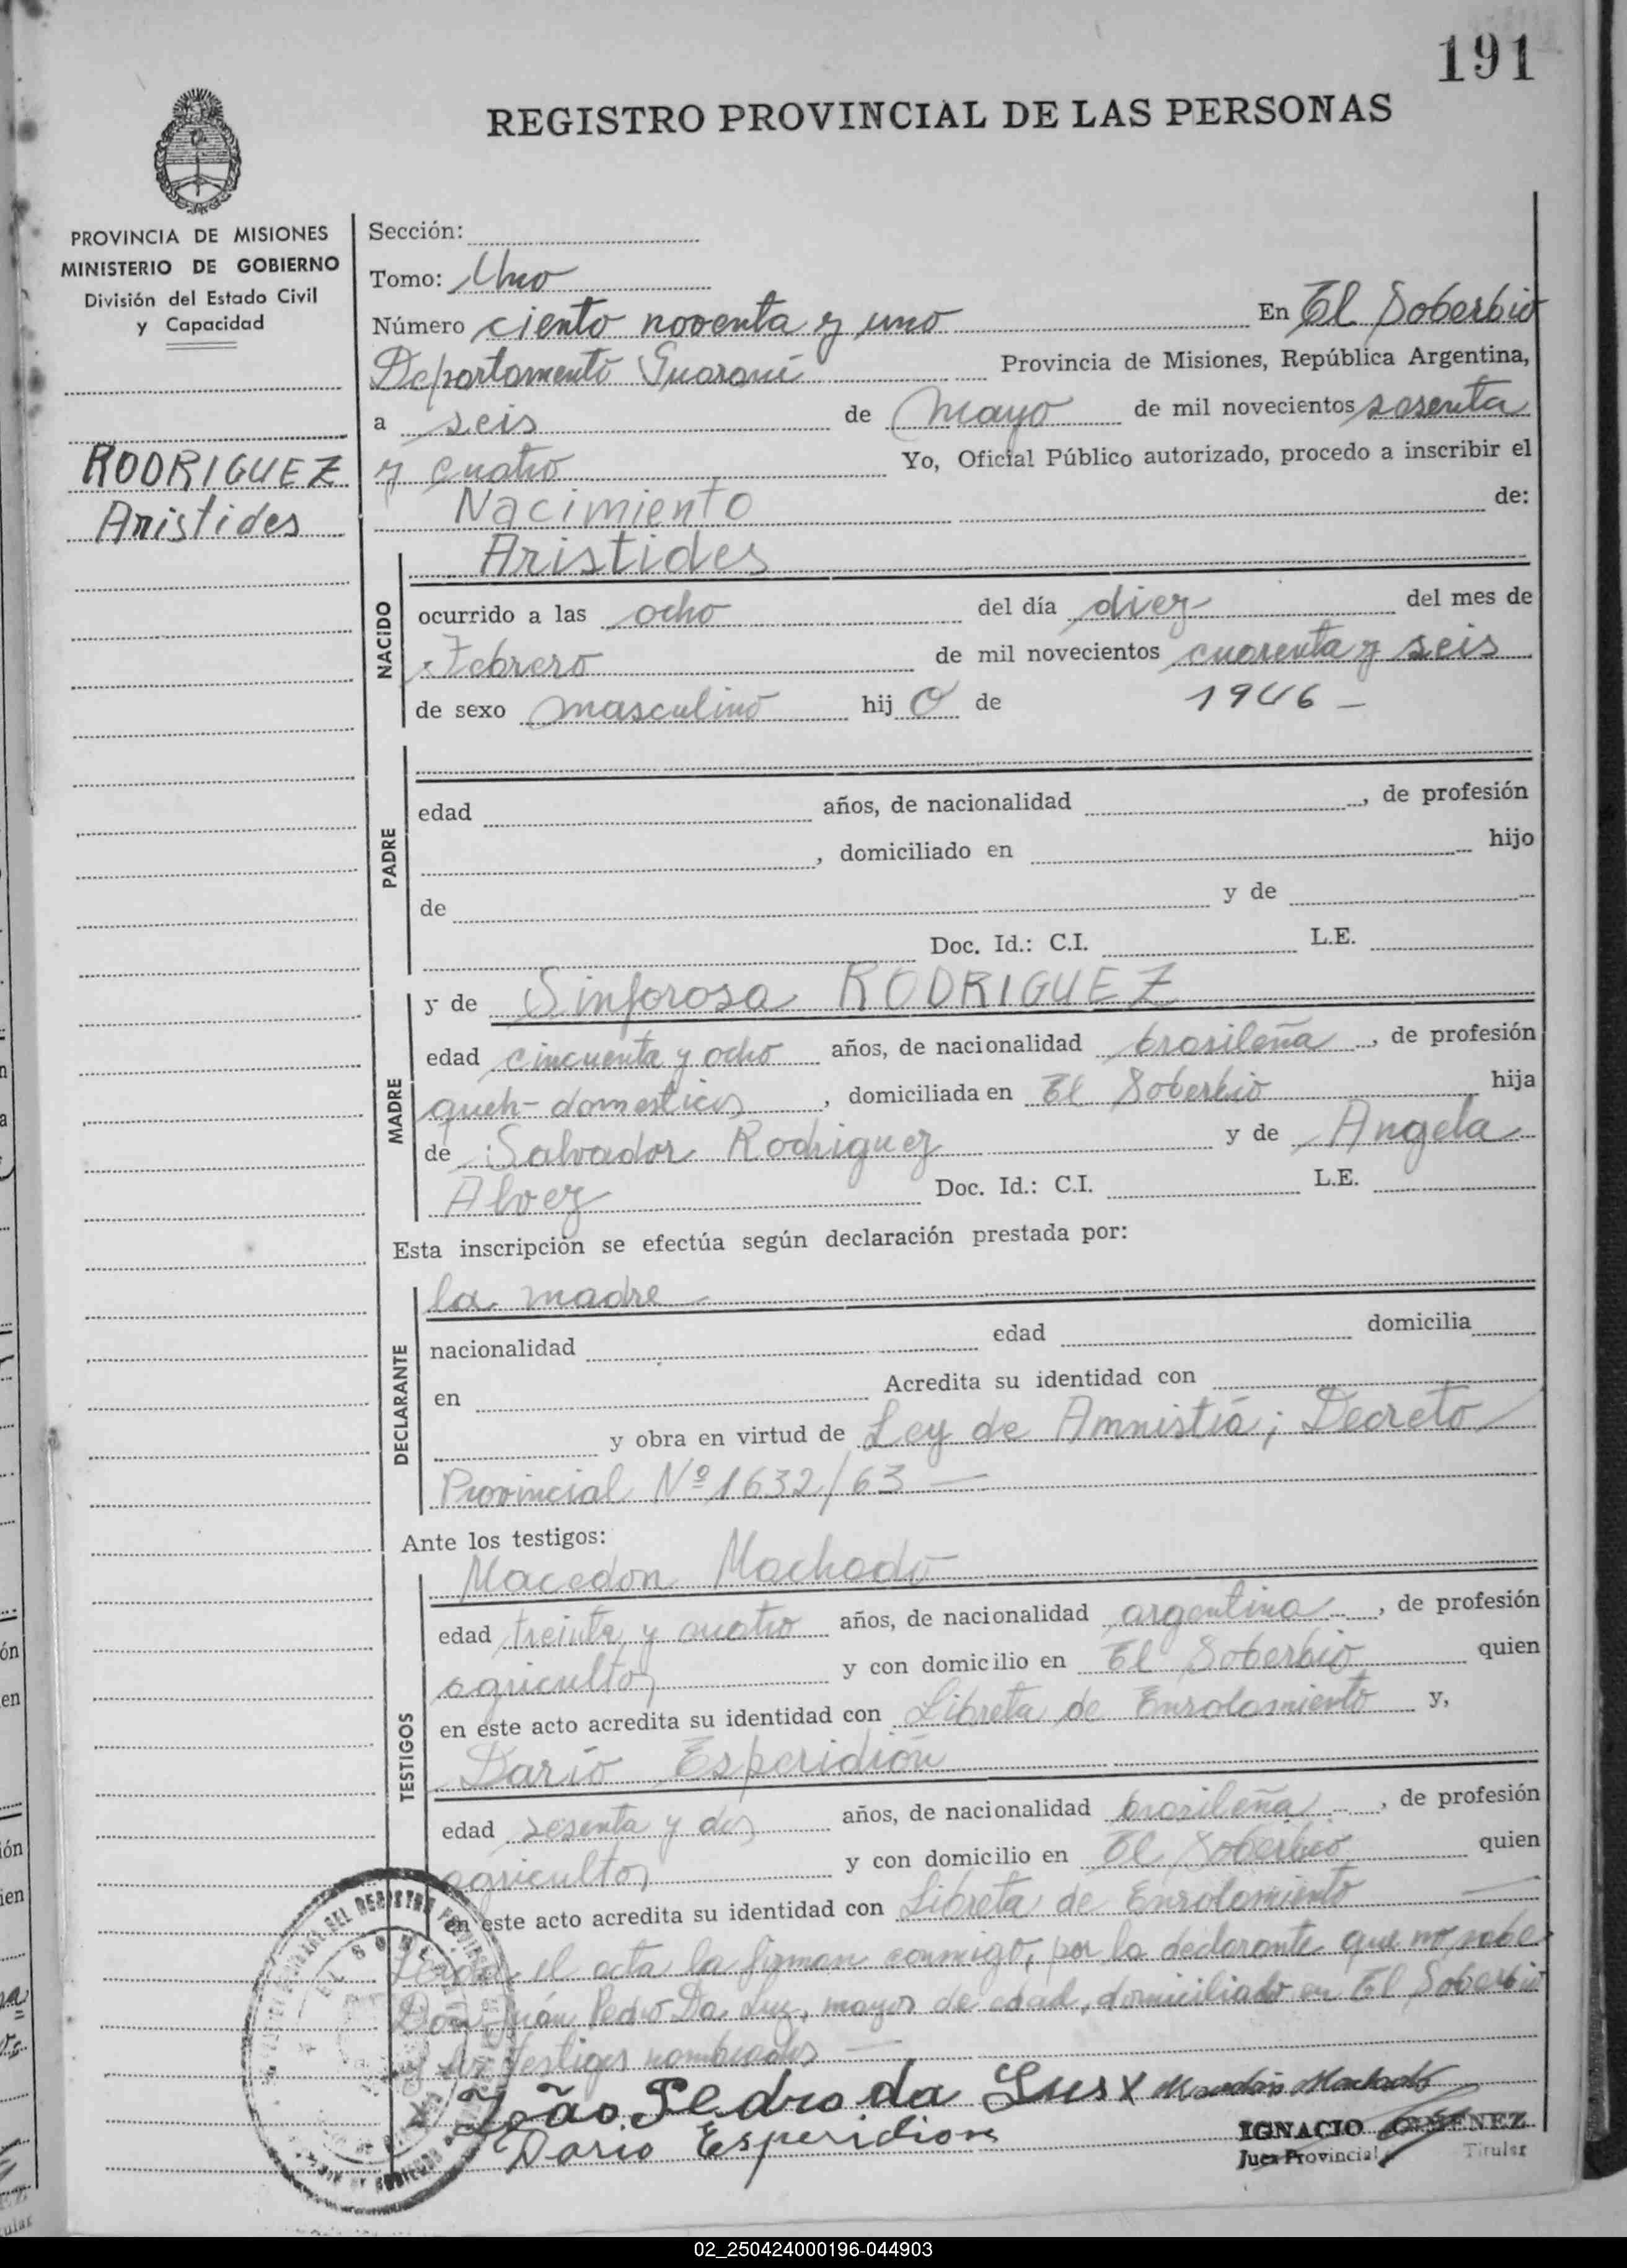 191
REGISTRO PROVINCIAL DE LAS PERSONAS
PROVINCIA DE MISIONES
MINISTERIO DE GOBIERNO
División del Estado Civil
y Capacidad
RODRIGUEZ
Aristides
Sección:
Tomo: Uno
Número ciento noventa y uno En El Soberbio
Departamento Guaraní Provincia de Misiones, República Argentina,
a seis de Mayo de mil novecientos sesenta
y cuatro Yo, Oficial Público autorizado, procedo a inscribir el
Nacimiento de:
Aristides
NACIDO
ocurrido a las ocho del día diez del mes de
Febrero de mil novecientos cuarenta y seis
de sexo masculino hij o de 1946 -
PADRE
edad años, de nacionalidad , de profesión
, domiciliado en hijo
de y de
Doc. Id.: C.I. L.E.
MADRE
y de Sinforosa RODRIGUEZ
edad cincuenta y ocho años, de nacionalidad brasileña , de profesión
queh- domesticos , domiciliada en El Soberbio hija
de Salvador Rodriguez y de Angela
Alvez Doc. Id.: C.I. L.E.
Esta inscripción se efectúa según declaración prestada por:
DECLARANTE
la madre
nacionalidad edad domicilia
en Acredita su identidad con
y obra en virtud de Ley de Amnistía; Decreto
Provincial Nº 1632/63 —
Ante los testigos:
TESTIGOS
Macedon Machado
edad treinta y cuatro años, de nacionalidad argentina , de profesión
agricultor y con domicilio en El Soberbio quien
en este acto acredita su identidad con Libreta de Enrolamiento y,
Darío Esperidión
edad sesenta y dos años, de nacionalidad brasileña , de profesión
agricultor y con domicilio en El Soberbio quien
en este acto acredita su identidad con Libreta de Enrolamiento —
Leída el acta la firman conmigo, por la declarante que no sabe
Don Juán Pedro Da Luz, mayor de edad, domiciliado en El Soberbio
y los testigos nombrados —
João Pedro da Lus x Machado
Dario Esperidion
IGNACIO GIMENEZ
Juez Provincial Titular
02_250424000196-044903